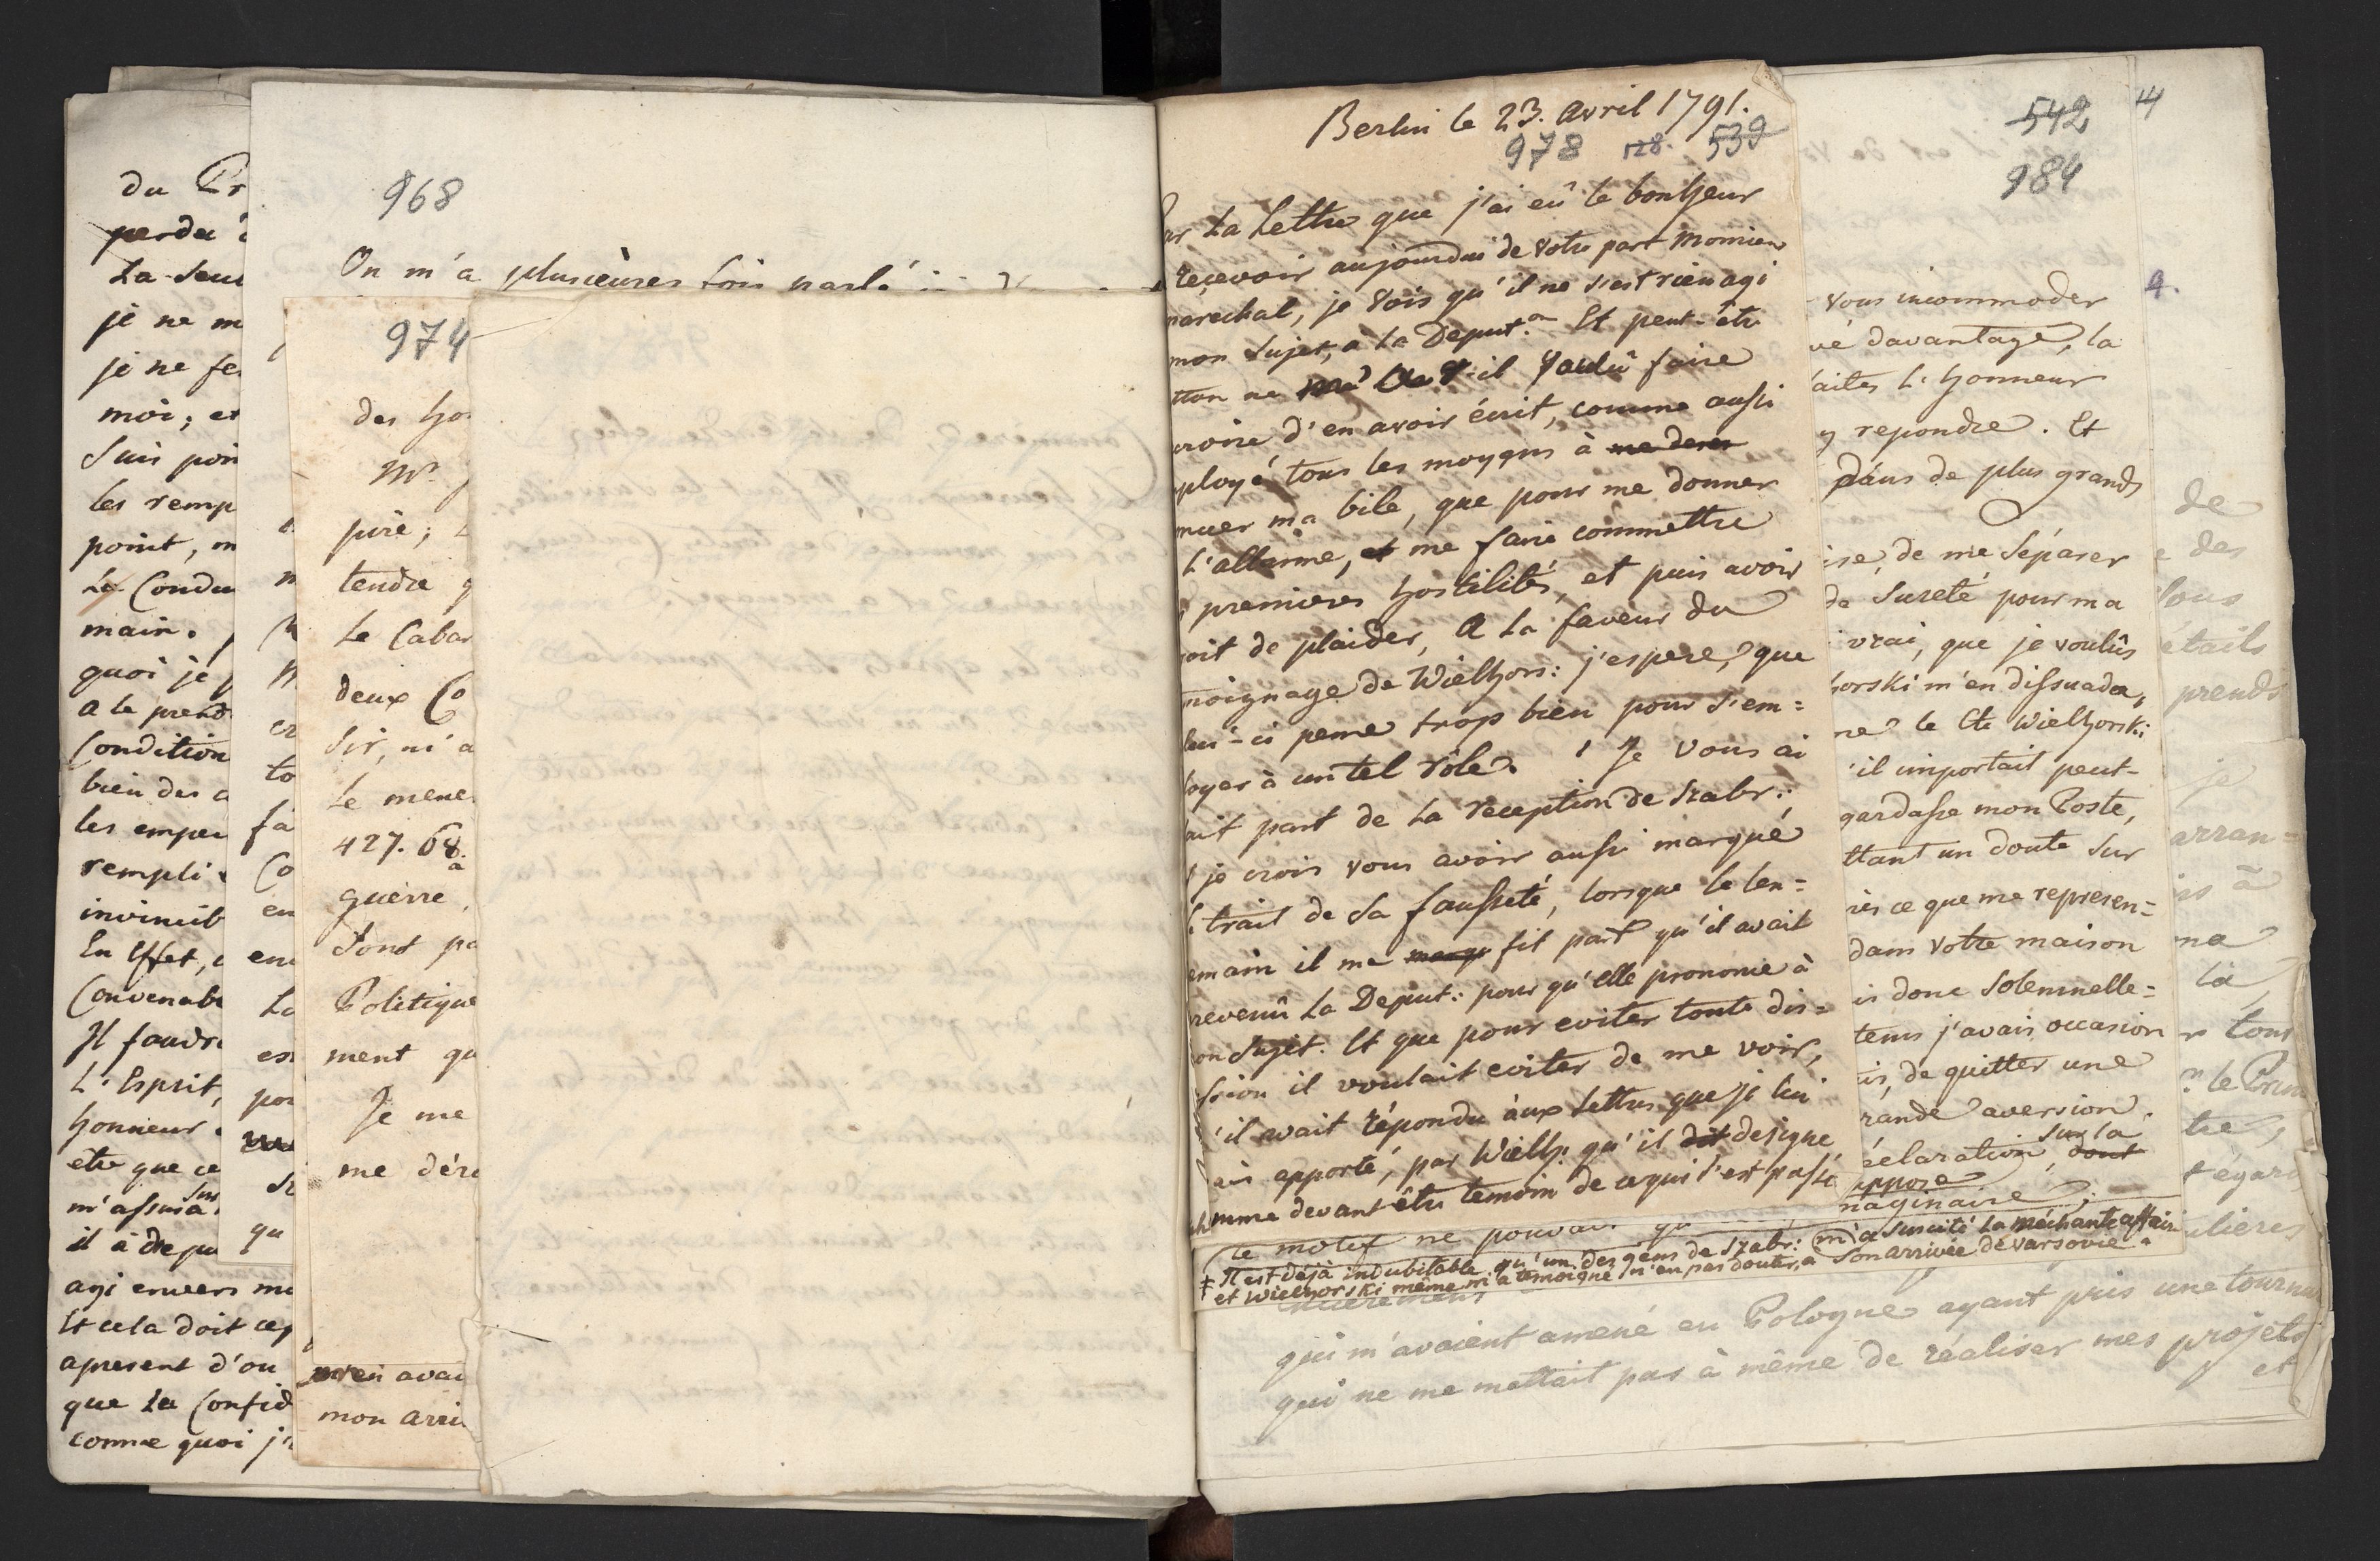 du Pr
perdu
La Seul
je ne m
je ne fe
moi; et
Suis poin
les remp
point, m
Le Condu
main.
quoi je
a le prend
Condition
bien des
les empe
rempli
invincib
En Effet,
Convenab
Il faudr
L'Esprit,
honneur
etre que ce
Sur
m'assura
il a
agi envers m
Et cela doit cep
apresent d'ou
que La Confid
comme quoi j'
968
On m'a plusieures fois parlé
m
er
to
fa
Co
en
en
La
es
pou
qu
974
des ho
Mr.
pire;
tendre
Le Cabar
deux Co
Sir, m'a
Le mene
427. 68.
a
guerre,
Sont pa
Politique
ment qu
Je me
me dére
avai
mon arri
Berlin le 23. Avril 1791.
978 128. 539
La Lettre que j'ai eû le bonheur
reçevoir aujourdui de Votre part Monsieur
marechal, je Vois qu'il ne s'est rien agi
mon Sujet, a la Deput.on Et peut-être
ne il Voulû faire
croire d'en avoir écrit, comme aussi
ployé tous les moyens à me
muer ma bile, que pour me donner
L'allarme, et me faire commettre
premieres hostilités, et puis avoir
oit de plaider, A La faveur du
moignage de Wielhors: j'espere, que
lui-ci pense trop bien pour s'em=
loyer à un tel rôle. Je Vous ai
ait part de La reception de Szabr:;
je crois vous avoir aussi marqué
trait de Sa fausseté, lorsque le len=
emain il me fit part qu'il avait
revenû La Deput: pour qu'elle prononce à
on Sujet. Et que pour eviter toute dis=
sion il voulait eviter de me voir,
'il avait répondu aux Lettres que je lui
ais apporté, par Wielh: qu'il designe
mme devant être temoin de ce qui s'est passé
Le motif ne pouvait qu
‡ Il est déjà indubitable qu'un des gens de Szabr: m'a Suscité La méchante affaire
et Wielhorski même m'a temoigné n'en pas douter, a Son arrivée de Varsovie.
qui m'avaient amené en Pologne ayant pris une tournu
qui ne me mettait pas à même de réaliser mes projets
et
542
984
Vous incommoder
vé davantage, la
aites L'honneur
y repondre. Et
dans de plus grands
ise, de me Séparer
de Sureté pour ma
vrai, que je voulûs
horski m'en dissuada,
ne le Cte Wielhorski
'il importait peut-
gardasse mon Poste,
ttant un doute Sur
rès ce que me represen=
dans Votre maison
is donc Solemnelle=
tems j'avais occasion
is, de quitter une
rande aversion.
Sur la
éclaration, dont
uppose
maginaire,
4
4.
de
e des
Vous
étails
prends
je
arran=
is à
na
La
r tous
n le Prin
tre,
t égard
ulieres